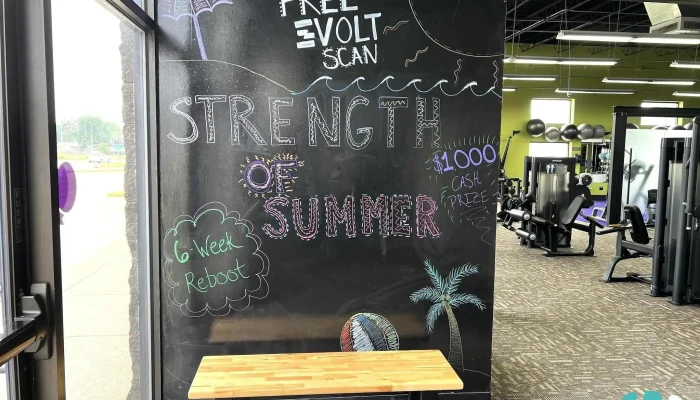 FREE
EVOLT
SCAN
STRENGTH
OF
SUMMER
$1000
CASH
PRIZE
6 Week
Reboot